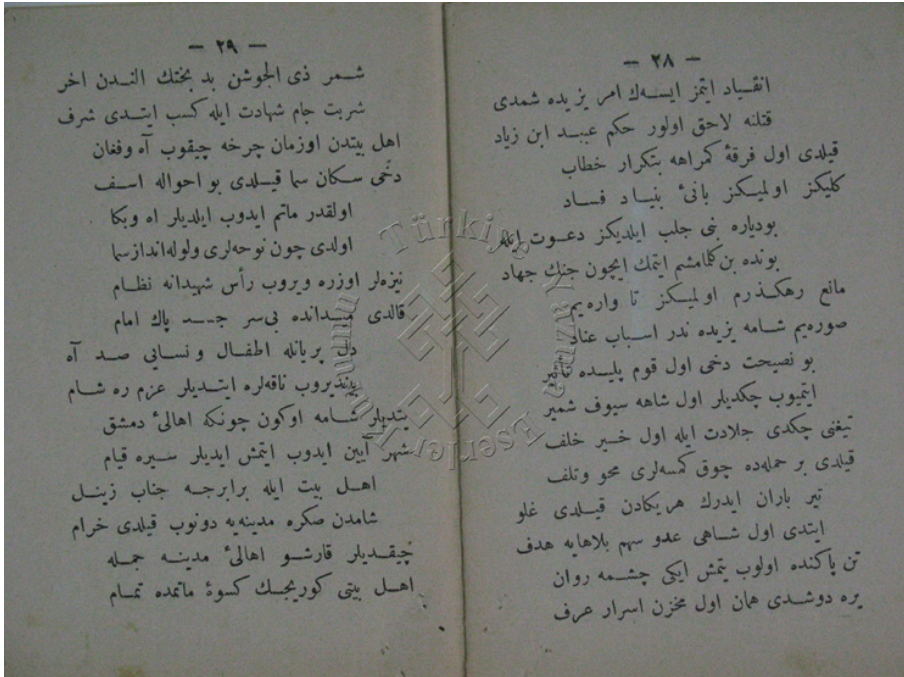 — ٢٨ —
انقياد ايتمز ايسه‌ك امر يزيده شمدى
قتلنه لاحق اولور حكم عبيد ابن زياد
قيلدى اول فرقهٔ كمراهه بتكرار خطاب
كليكز اولميكز بانئ بنياد فساد
بودياره بنى جلب ايلديكز دعوت ايله
بونده بن كلمامشم ايتمك ايچون جنك جهاد
مانع رهكذرم اولميكز تا واره‌يم
صوره‌يم شامه يزيده ندر اسباب عناد
بو نصيحت دخى اول قوم پليده تأثير
ايتميوب چكديلر اول شاهه سيوف شمير
تيغنى چكدى جلادت ايله اول خير خلف
قيلدى بر حمله‌ده چوق كمسه‌لرى محو وتلف
تير باران ايدرك هر يكادن قيلدى غلو
ايتدى اول شاهى عدو سهم بلاهايه هدف
تن پاكنده اولوب يتمش ايكى چشمه روان
يره دوشدى همان اول مخزن اسرار عرف
— ٢٩ —
شمر ذى الجوشن بد بختك الندن اخر
شربت جام شهادت ايله كسب ايتدى شرف
اهل بيتدن اوزمان چرخه چيقوب آه وفغان
دخى سكان سما قيلدى بو احواله اسف
اولقدر ماتم ايدوب ايلديلر اه وبكا
اولدى چون نوحه‌لرى ولوله‌انداز سما
نيزه‌لر اوزره ويروب رأس شهيدانه نظام
قالدى ميدانده بى‌سر جسد پاك امام
دل پريانله اطفال ونسايى صد آه
بينديروب ناقه‌لره ايتديلر عزم ره شام
يتديلر شامه اوكون چونكه اهالئ دمشق
شهر آيين ايدوب ايتمش ايديلر سيره قيام
اهل بيت ايله برابرجه جناب زينل
شامدن صكره مدينه‌يه دونوب قيلدى خرام
چيقديلر قارشو اهالئ مدينه جمله
اهل بيتى كوريجك كسوهٔ ماتمده تمام
Türkiye Yazma Eserler Kurumu